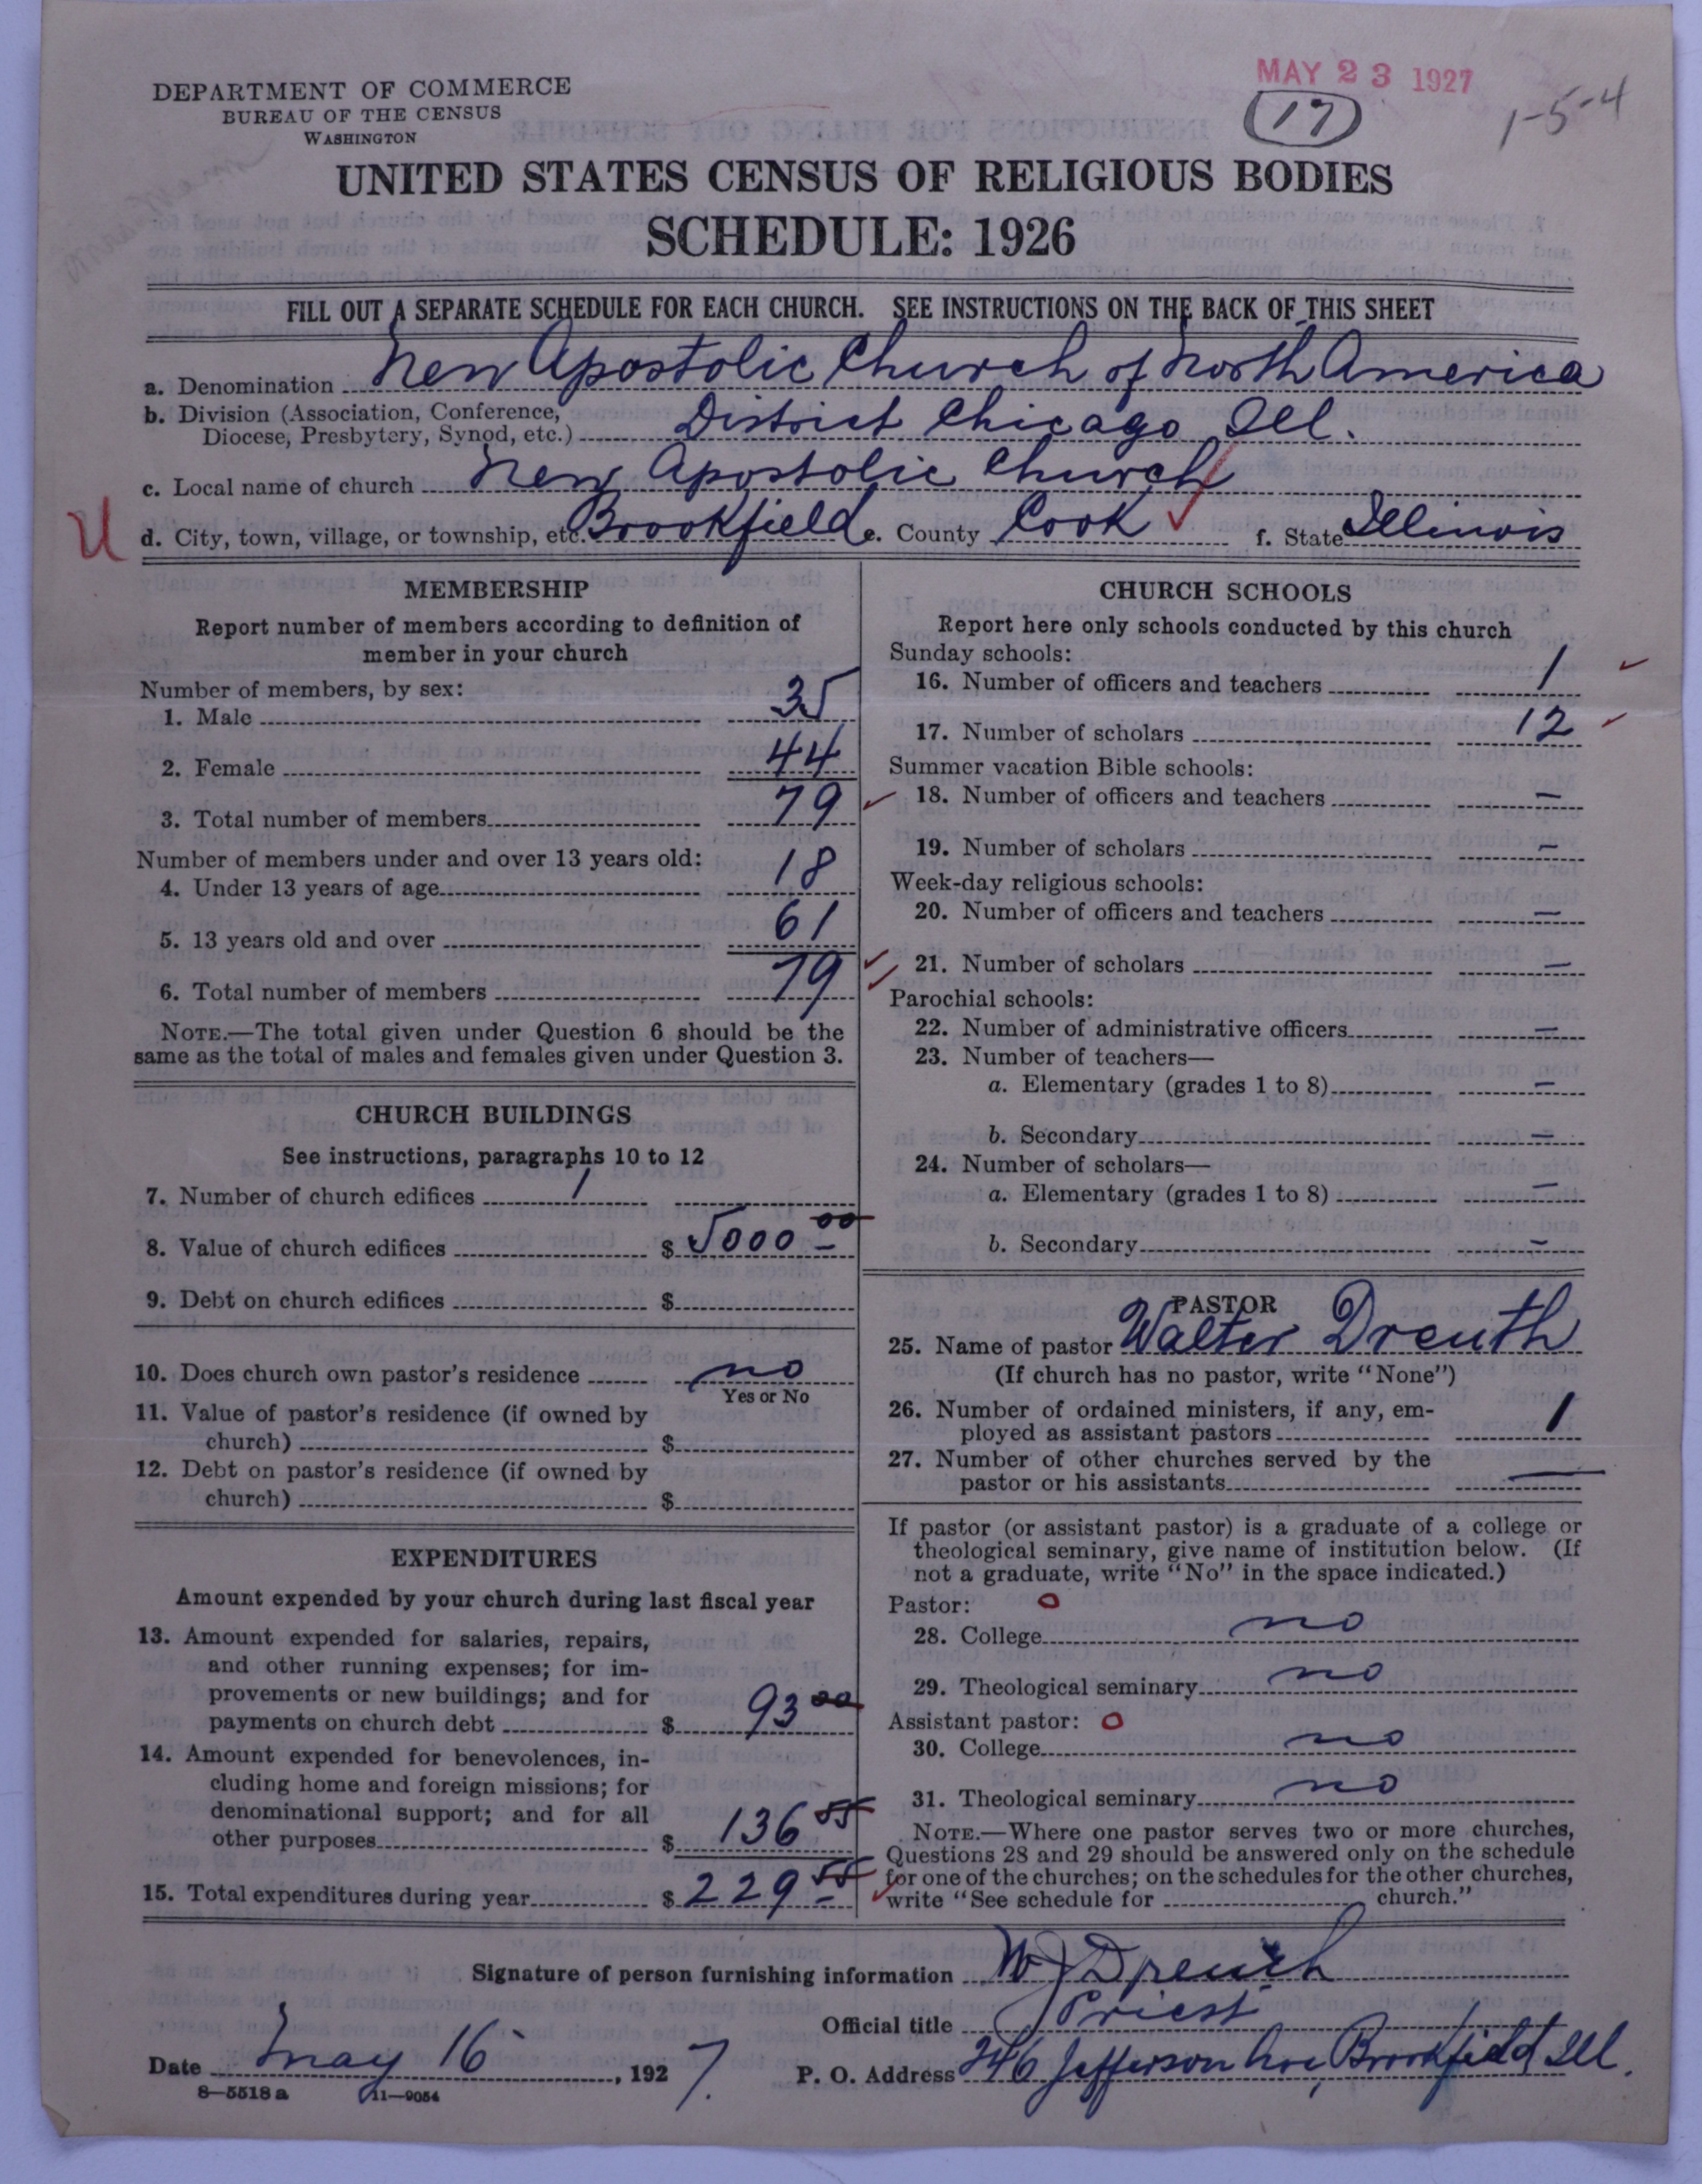 MAY 23 1927
(17)
1-5-4
DEPARTMENT OF COMMERCE
BUREAU OF THE CENSUS
WASHINGTON
UNITED STATES CENSUS OF RELIGIOUS BODIES
SCHEDULE: 1926
FILL OUT A SEPARATE SCHEDULE FOR EACH CHURCH. SEE INSTRUCTIONS ON THE BACK OF THIS SHEET
a. Denomination New Apostolic Church of North America
b. Division (Association, Conference,
Diocese, Presbytery, Synod, etc.) District Chicago Ill.
c. Local name of church New Apostolic Church
U
d. City, town, village, or township, etc. Brookfield e. County Cook f. State Illinois
MEMBERSHIP
Report number of members according to definition of
member in your church
Number of members, by sex:
1. Male 35
2. Female 44
3. Total number of members 79
Number of members under and over 13 years old:
4. Under 13 years of age 18
5. 13 years old and over 61
6. Total number of members 79
NOTE.—The total given under Question 6 should be the
same as the total of males and females given under Question 3.
CHURCH BUILDINGS
See instructions, paragraphs 10 to 12
7. Number of church edifices 1
8. Value of church edifices $ 5000 00
9. Debt on church edifices $
10. Does church own pastor's residence no
Yes or No
11. Value of pastor's residence (if owned by
church) $
12. Debt on pastor's residence (if owned by
church) $
EXPENDITURES
Amount expended by your church during last fiscal year
13. Amount expended for salaries, repairs,
and other running expenses; for im-
provements or new buildings; and for
payments on church debt $ 93 00
14. Amount expended for benevolences, in-
cluding home and foreign missions; for
denominational support; and for all
other purposes $ 136 55
15. Total expenditures during year $ 229 55
CHURCH SCHOOLS
Report here only schools conducted by this church
Sunday schools:
16. Number of officers and teachers 1
17. Number of scholars 12
Summer vacation Bible schools:
18. Number of officers and teachers —
19. Number of scholars —
Week-day religious schools:
20. Number of officers and teachers —
21. Number of scholars —
Parochial schools:
22. Number of administrative officers —
23. Number of teachers—
a. Elementary (grades 1 to 8) —
b. Secondary —
24. Number of scholars—
a. Elementary (grades 1 to 8) —
b. Secondary —
PASTOR
25. Name of pastor Walter Dreuth
(If church has no pastor, write "None")
26. Number of ordained ministers, if any, em-
ployed as assistant pastors 1
27. Number of other churches served by the
pastor or his assistants —
If pastor (or assistant pastor) is a graduate of a college or
theological seminary, give name of institution below. (If
not a graduate, write "No" in the space indicated.)
Pastor: 0
28. College no
29. Theological seminary no
Assistant pastor: 0
30. College no
31. Theological seminary no
NOTE.—Where one pastor serves two or more churches,
Questions 28 and 29 should be answered only on the schedule
for one of the churches; on the schedules for the other churches,
write "See schedule for church."
Signature of person furnishing information W J Dreuth
Official title Priest
Date May 16 , 1927. P. O. Address 246 Jefferson Ave, Brookfield Ill.
8—5518 a 11—9054